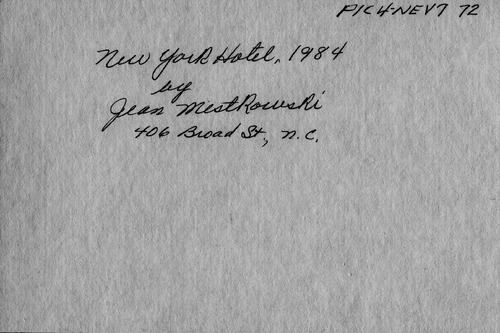 PIC4-NEV7 72
New York Hotel, 1984
by
Jean Mestkowski
406 Broad St, N.C.